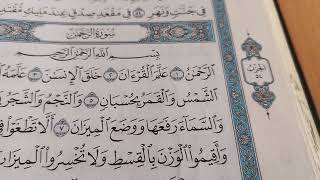 فِى جَنَّٰتٍ وَنَهَرٍ ٥٤ فِى مَقْعَدِ صِدْقٍ عِندَ مَلِيكٍ مُّقْتَدِ
سُورَةُ الرَّحْمَٰن
بِسْمِ ٱللَّهِ ٱلرَّحْمَٰنِ ٱلرَّحِيمِ
ٱلرَّحْمَٰنُ ١ عَلَّمَ ٱلْقُرْءَانَ ٢ خَلَقَ ٱلْإِنسَٰنَ ٣ عَلَّمَهُ
ٱلشَّمْسُ وَٱلْقَمَرُ بِحُسْبَانٍ ٥ وَٱلنَّجْمُ وَٱلشَّجَرُ
وَٱلسَّمَآءَ رَفَعَهَا وَوَضَعَ ٱلْمِيزَانَ ٧ أَلَّا تَطْغَوْا۟ فِى
وَأَقِيمُوا۟ ٱلْوَزْنَ بِٱلْقِسْطِ وَلَا تُخْسِرُوا۟ ٱلْمِيزَانَ